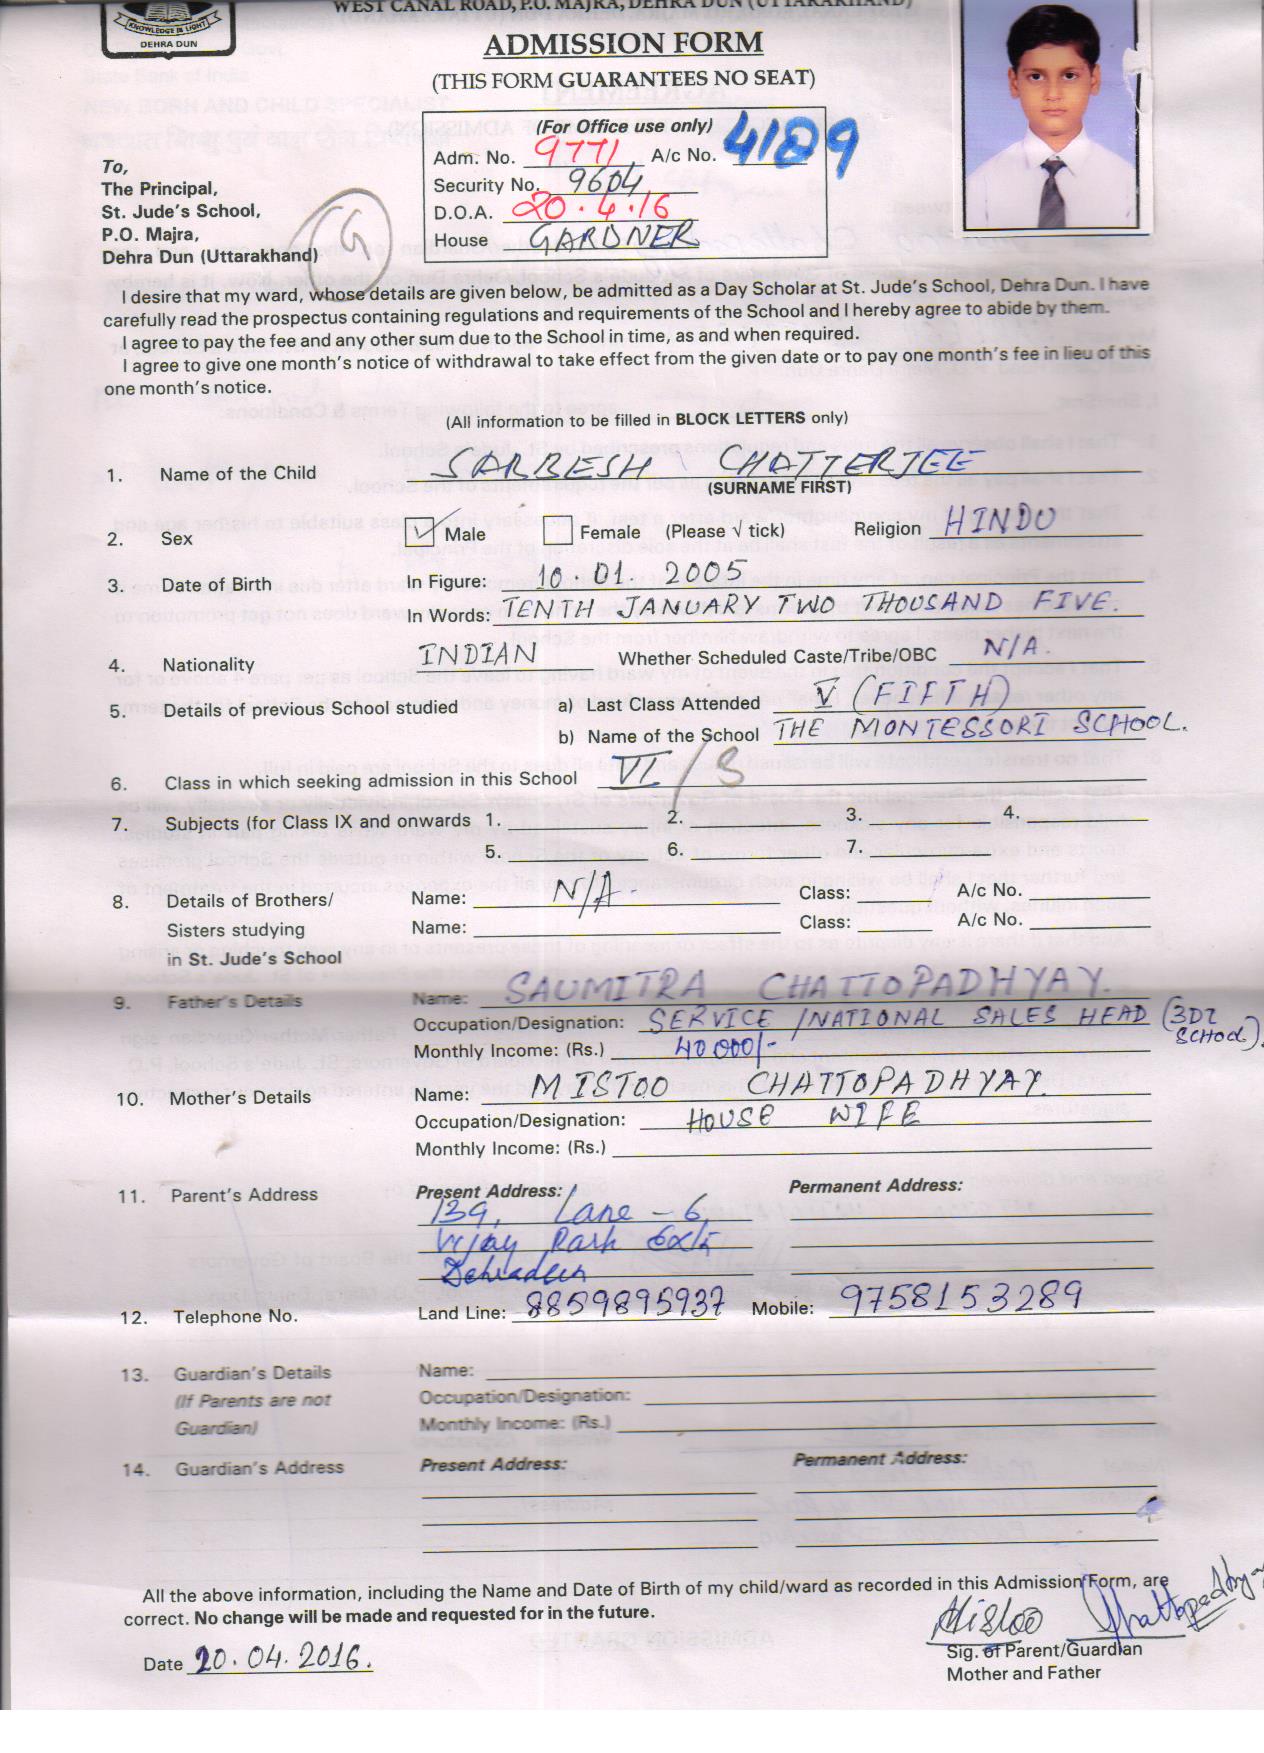 WEST CANAL ROAD, P.O. MAJRA, DEHRA DUN (UTTARAKHAND)
KNOWLEDGE IS LIGHT
DEHRA DUN
ADMISSION FORM
(THIS FORM GUARANTEES NO SEAT)
(For Office use only)
Adm. No. 9771 A/c No. 4189
Security No. 9604
D.O.A. 20.4.16
House GARDNER
To,
The Principal,
St. Jude's School,
P.O. Majra,
Dehra Dun (Uttarakhand)
G
I desire that my ward, whose details are given below, be admitted as a Day Scholar at St. Jude's School, Dehra Dun. I have
carefully read the prospectus containing regulations and requirements of the School and I hereby agree to abide by them.
I agree to pay the fee and any other sum due to the School in time, as and when required.
I agree to give one month's notice of withdrawal to take effect from the given date or to pay one month's fee in lieu of this
one month's notice.
(All information to be filled in BLOCK LETTERS only)
1. Name of the Child SARBESH CHATTERJEE
(SURNAME FIRST)
2. Sex Male Female (Please √ tick) Religion HINDU
3. Date of Birth In Figure: 10.01 2005
In Words: TENTH JANUARY TWO THOUSAND FIVE.
4. Nationality INDIAN Whether Scheduled Caste/Tribe/OBC N/A.
5. Details of previous School studied a) Last Class Attended V (FIFTH)
b) Name of the School THE MONTESSORI SCHOOL.
6. Class in which seeking admission in this School VI /
7. Subjects (for Class IX and onwards 1. 2. 3. 4.
5. 6. 7.
8. Details of Brothers/ Name: N/A. Class: A/c No.
Sisters studying Name: Class: A/c No.
in St. Jude's School
9. Father's Details Name: SAUMITRA CHATTOPADHYAY.
Occupation/Designation: SERVICE /NATIONAL SALES HEAD (3DI
SCHOOL).
Monthly Income: (Rs.) 40000/-
10. Mother's Details Name: MISTOO CHATTOPADHYAY.
Occupation/Designation: HOUSE WIFE
Monthly Income: (Rs.)
11. Parent's Address Present Address: Permanent Address:
139, Lane - 6,
Vijay Park Extn
Dehradun
12. Telephone No. Land Line: 8859895937 Mobile: 9758153289
13. Guardian's Details Name:
(If Parents are not Occupation/Designation:
Guardian) Monthly Income: (Rs.)
14. Guardian's Address Present Address: Permanent Address:
All the above information, including the Name and Date of Birth of my child/ward as recorded in this Admission Form, are
correct. No change will be made and requested for in the future.
Mistoo Chattopadhyay
Date 20.04.2016.
Sig. of Parent/Guardian
Mother and Father